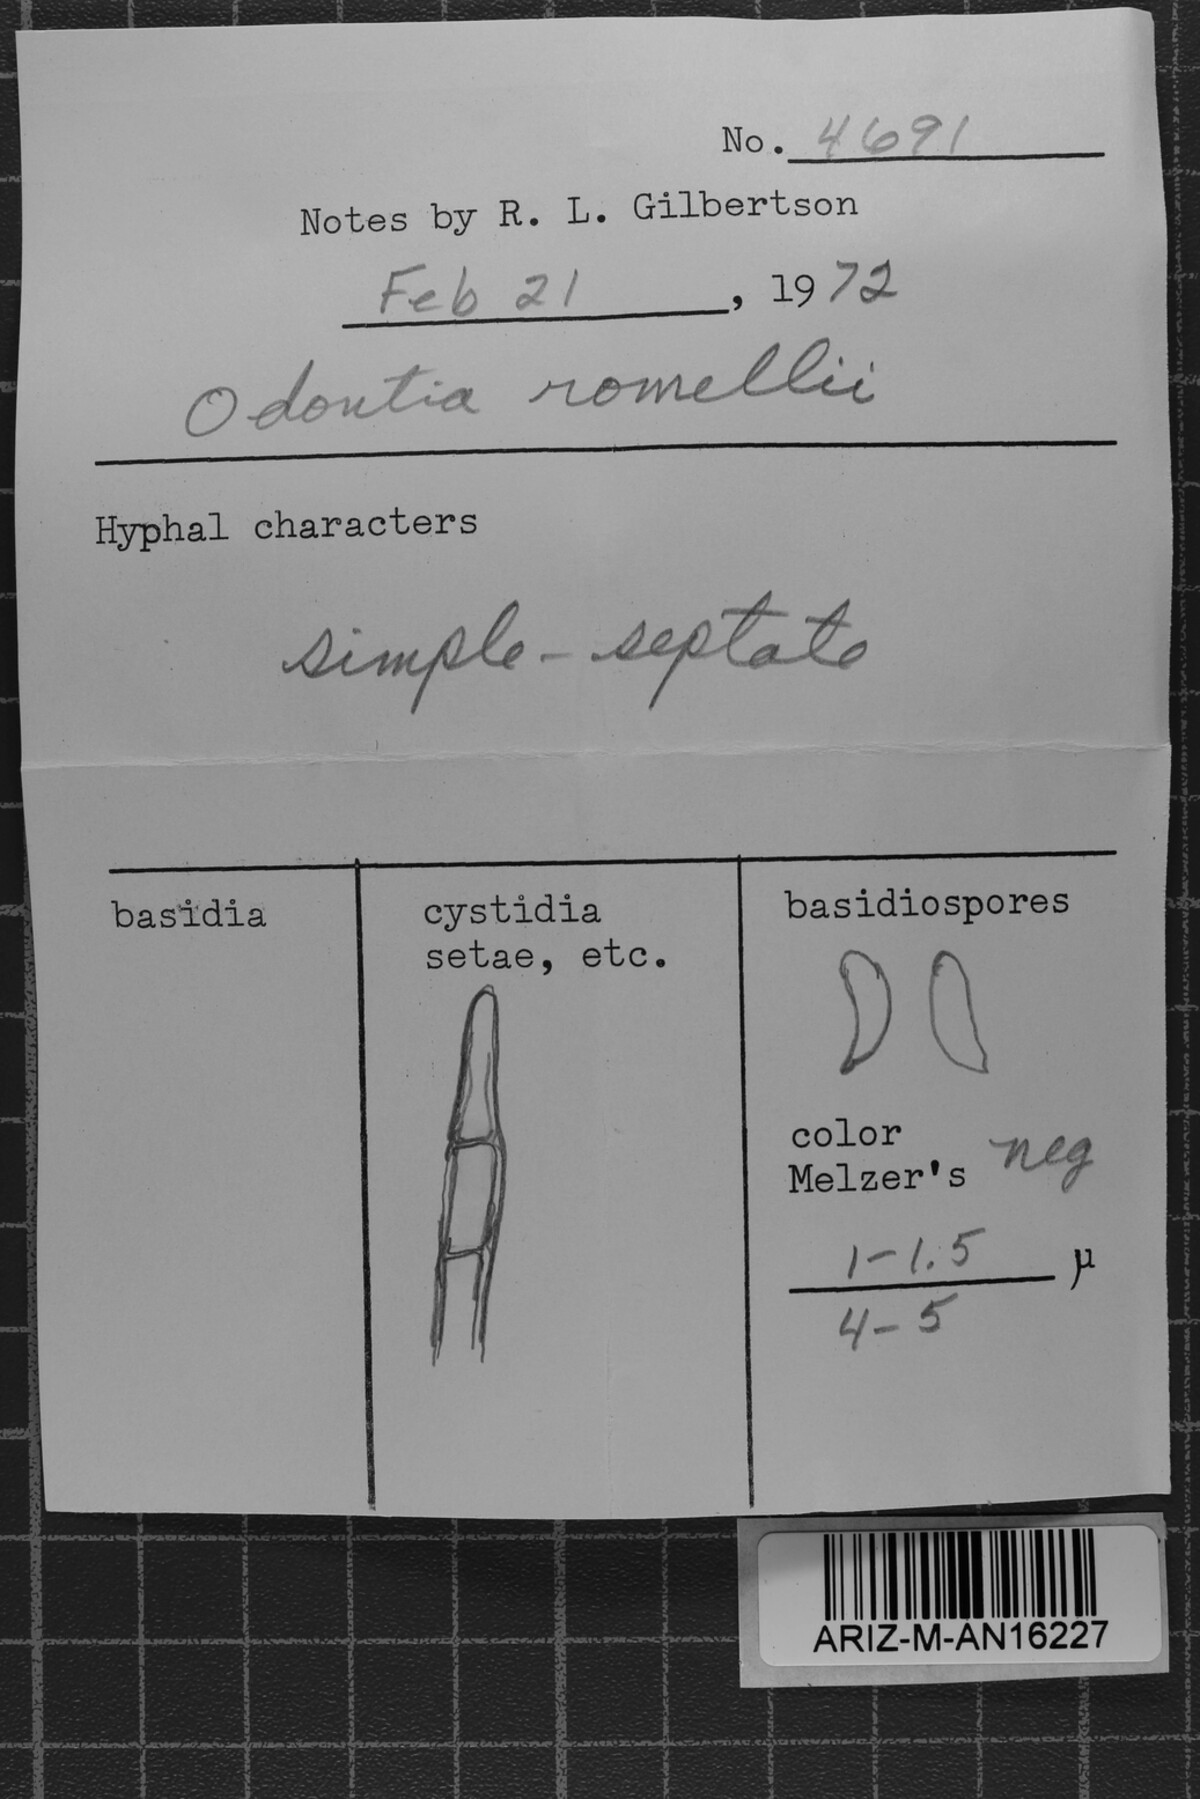 No. 4691
Notes by R. L. Gilbertson
Feb 21, 1972
Odontia romellii
Hyphal characters
simple-septate
basidia
cystidia
setae, etc.
basidiospores
color
Melzer's neg
1-1.5 µ
4-5
ARIZ-M-AN16227